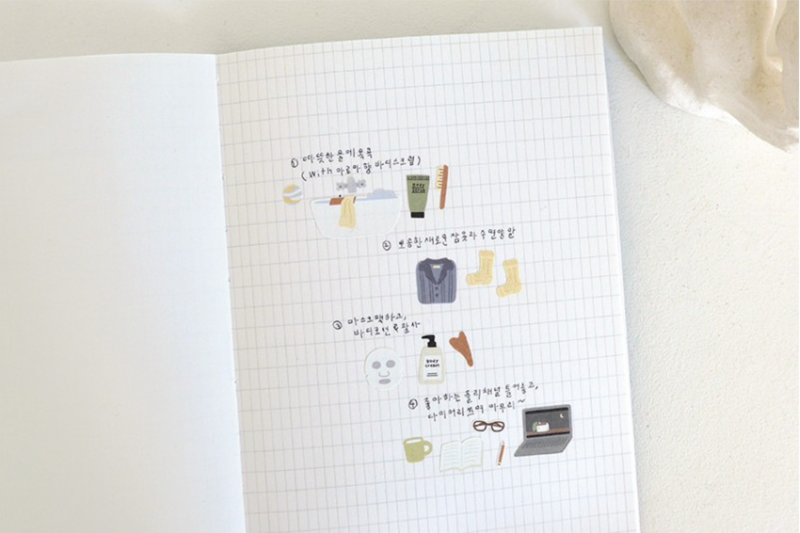 ① 따뜻한 물에 목욕
(with 아로마향 바디스크럽)
② 뽀송한 새로운 잠옷과 수면양말
③ 마스크팩하고,
바디로션 & 괄사
BODY
Body
cream
④ 좋아하는 플리 채널 틀어놓고,
다이어리 쓰며 마무리~